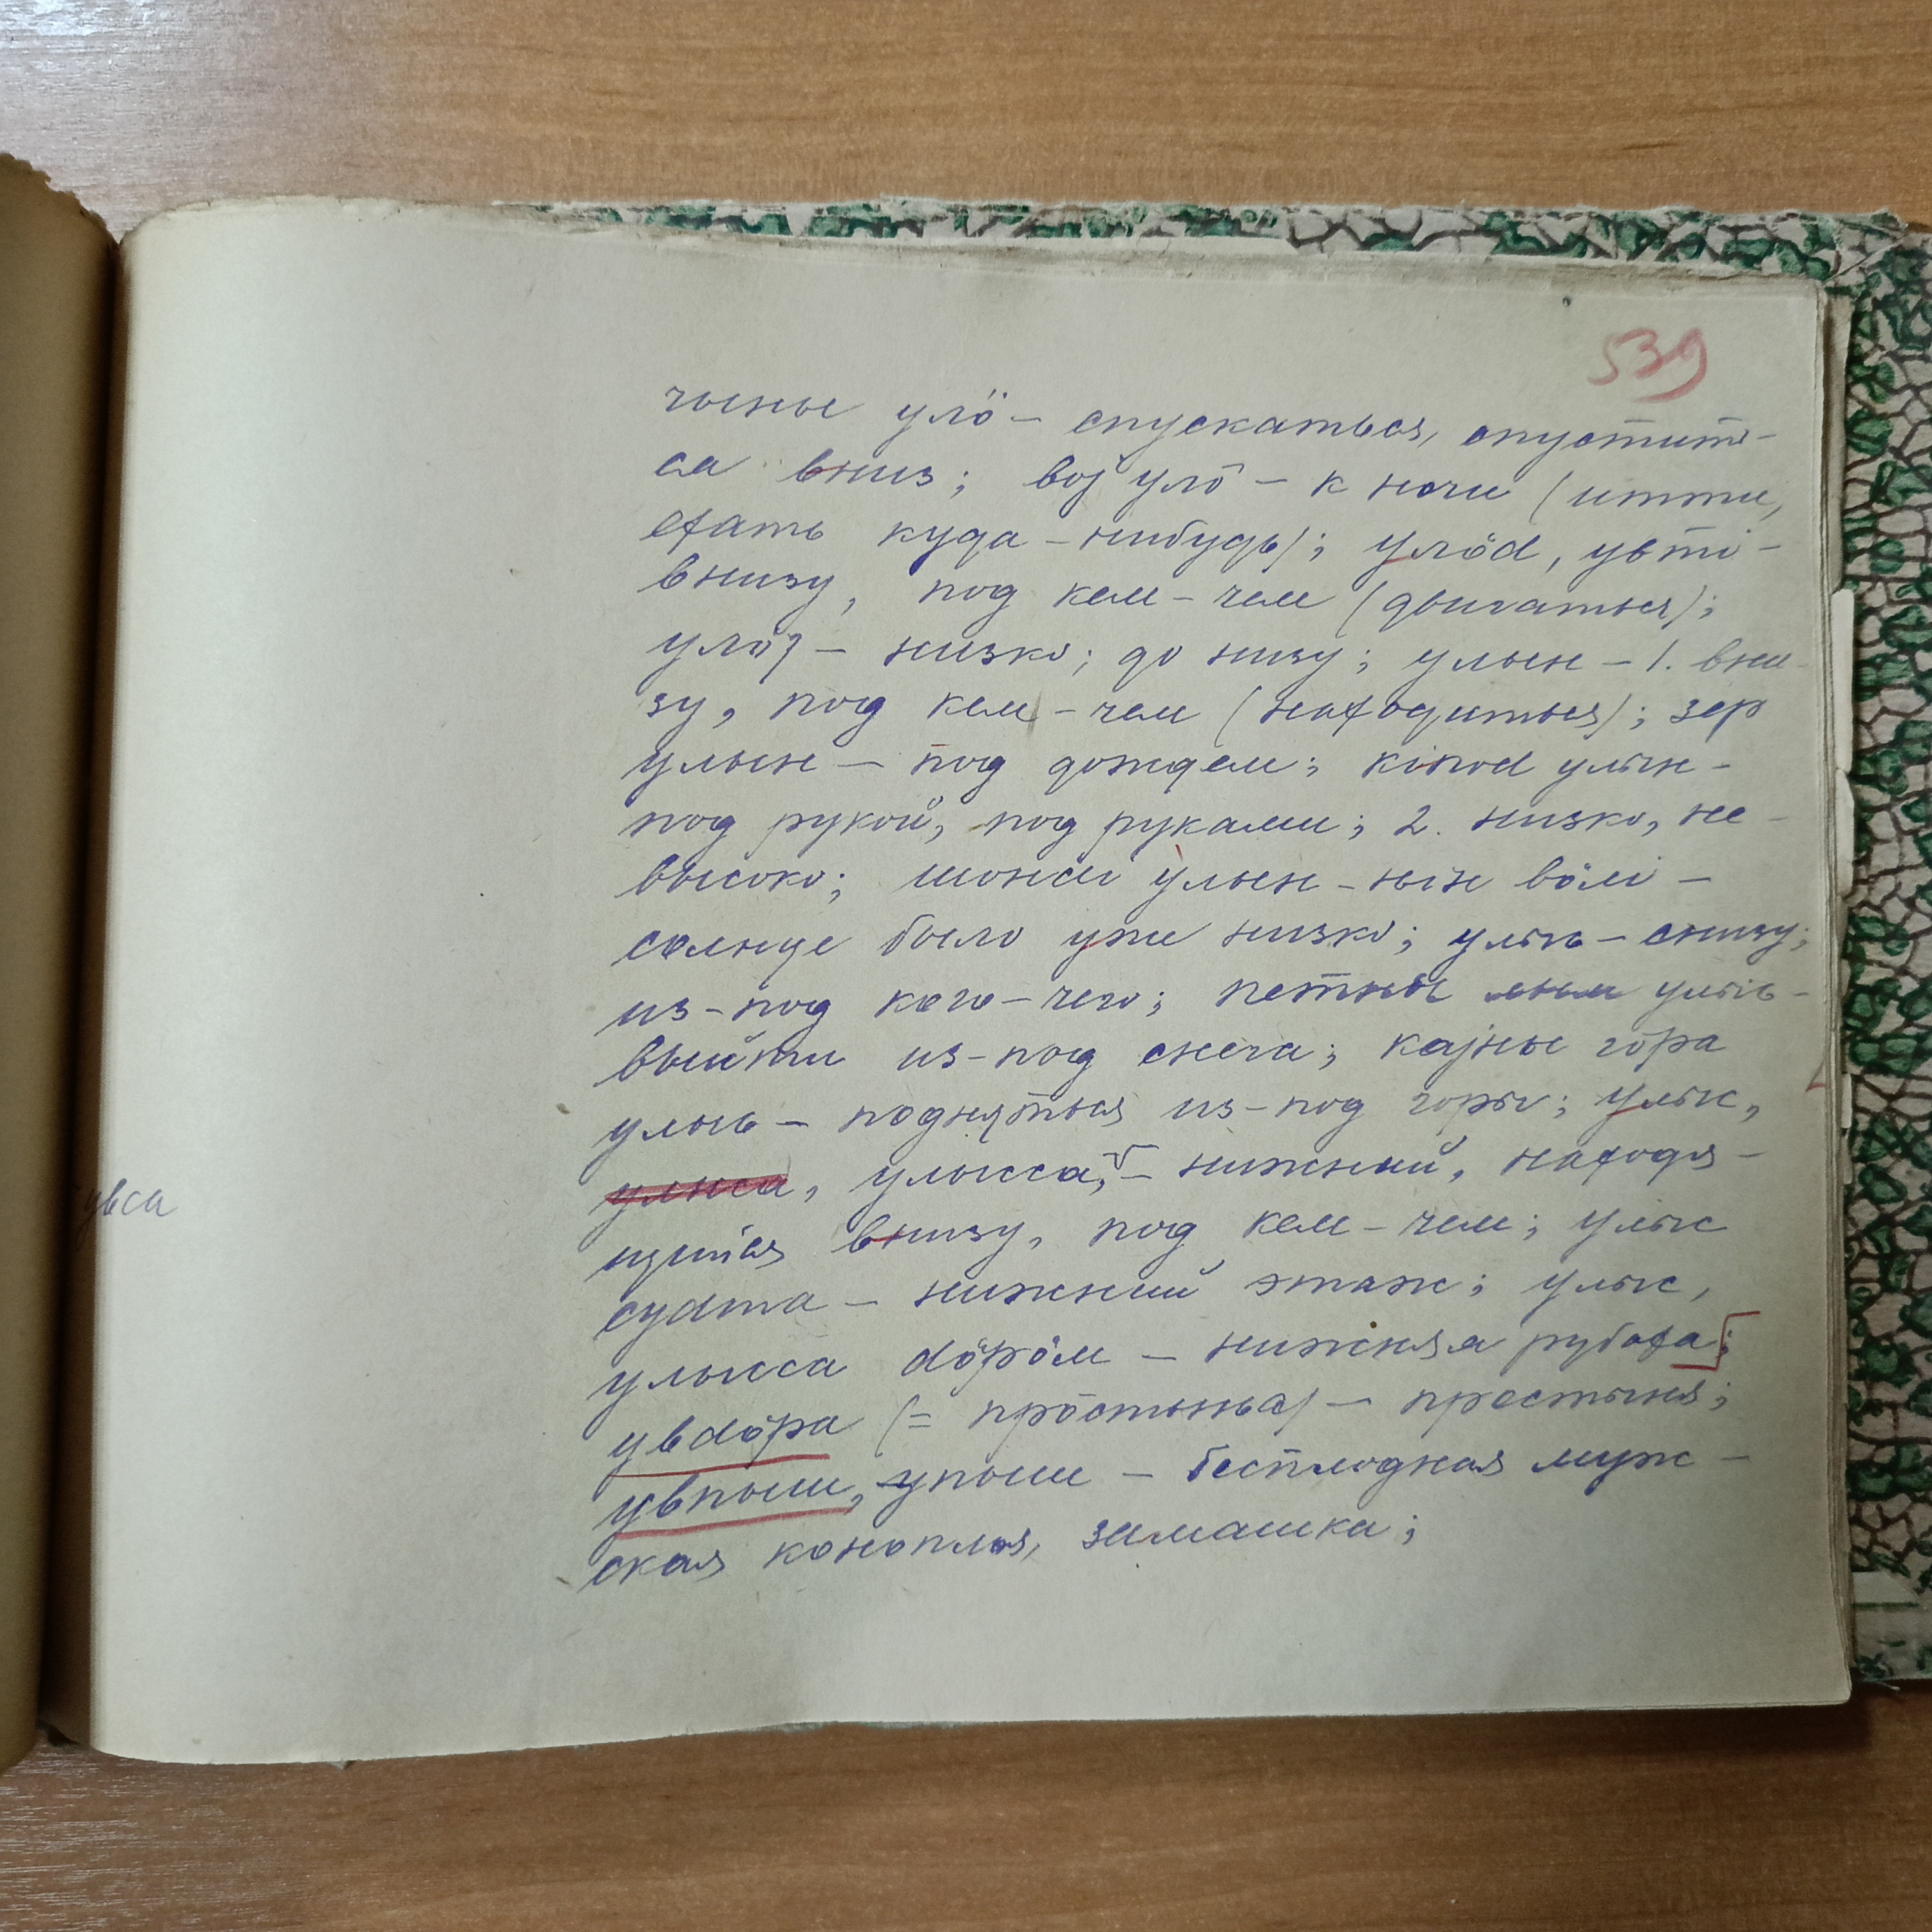 539
чыны улӧ – спускаться, опустить-
ся вниз; воj улӧ – к ночи (итти,
ехать куда-нибудь); улӧd, увті –
внизу, под кем-чем (двигаться);
улӧʒ – низко; до низу; улын – 1. вни-
зу, под кем-чем (находиться); зер
улын – под дождем; кіпоd улын –
под рукой, под руками; 2. низко, не-
высоко; шонді улын-нін вӧлі –
солнце было уже низко; улыԍ – снизу;
из-под кого-чего; петны лым улыԍ –
выйти из-под снега; каjны гӧра
улыԍ – подняться из-под горы; улыс,
улыса, улысса, – нижний, находя-
увса
щийся внизу, под кем-чем; улыс
суdта – нижний этаж; улыс,
улысса dӧрӧм – нижняя рубаха;
увdӧра (= прӧстыньа) – простыня;
увпыш, упыш – бесплодная муж-
ская конопля, замашка;